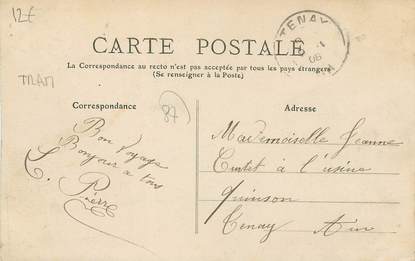 12€
TENAY
06
AIN
CARTE POSTALE
La Correspondance au recto n'est pas acceptée par tous les pays étrangers
(Se renseigner à la Poste)
TRAM
Correspondance
87
Adresse
Bon Voyage
Bonjour a tous
Pierre
Mademoiselle Jeanne
à l'usine
Quinson
Tenay Ain